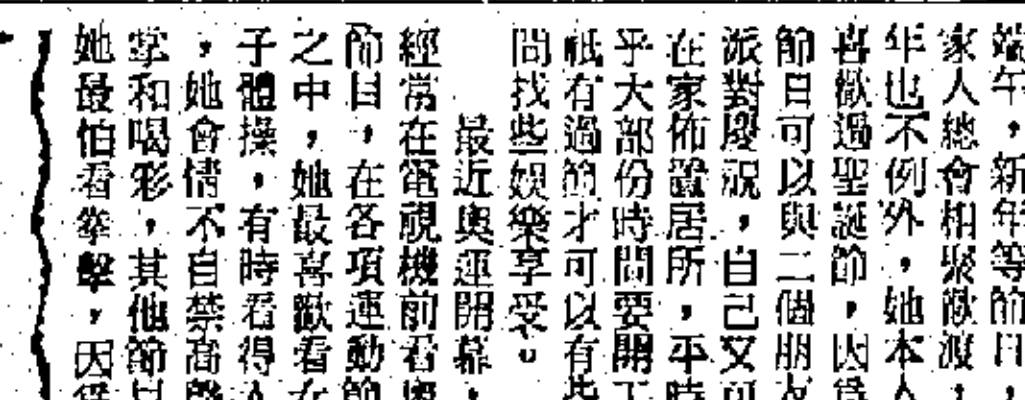 端午，新年等節日，
家人總會相聚歡渡，
年也不例外，她本人
喜歡過聖誕節，因爲
節日可以與二個朋友
派對慶祝，自己又可
在家佈置居所，平時
乎大部份時間要開工
祗有過節才可以有些
間找些娛樂享受。
最近奧運開幕，
經常在電視機前看奧
節目，在各項運動節
之中，她最喜歡看女
子體操，有時看得入
，她會情不自禁高聲
掌和喝彩，其他節目
她最怕看拳擊，因爲